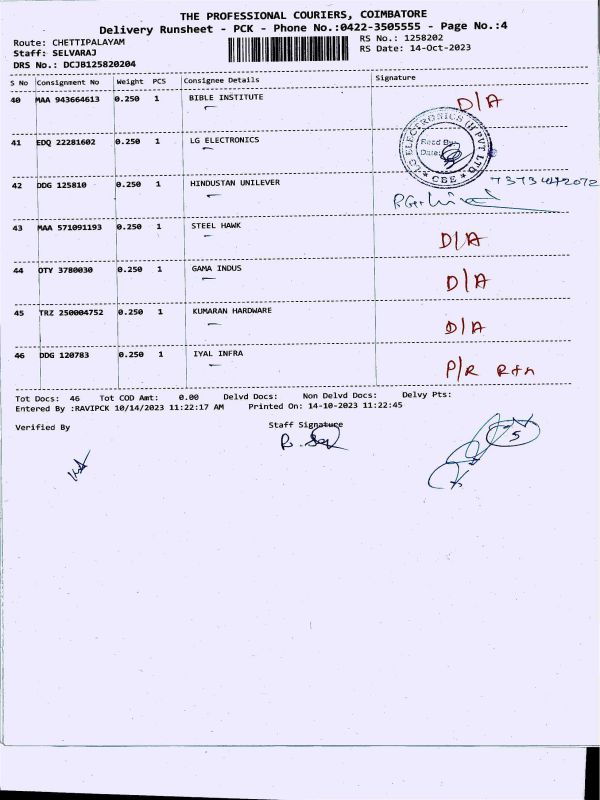 THE PROFESSIONAL COURIERS, COIMBATORE
Delivery Runsheet - PCK - Phone No.:0422-3505555 - Page No.:4
Route: CHETTIPALAYAM RS No.: 1258202
Staff: SELVARAJ RS Date: 14-Oct-2023
DRS No.: DCJB125820204
S No Consignment No Weight PCS Consignee Details Signature
40 MAA 943664613 0.250 1 BIBLE INSTITUTE D/A
41 EDQ 22281602 0.250 1 LG ELECTRONICS
LG ELECTRONICS (I) PVT LTD
Recd By:
Date:
CBE
42 DDG 125810 0.250 1 HINDUSTAN UNILEVER
43 MAA 571091193 0.250 1 STEEL HAWK D/A
44 OTY 3780030 0.250 1 GAMA INDUS D/A
45 TRZ 250004752 0.250 1 KUMARAN HARDWARE D/A
46 DDG 120783 0.250 1 IYAL INFRA P/R Rtn
Tot Docs: 46 Tot COD Amt: 0.00 Delvd Docs: Non Delvd Docs: Delvy Pts:
Entered By :RAVIPCK 10/14/2023 11:22:17 AM Printed On: 14-10-2023 11:22:45
Verified By Staff Signature
5